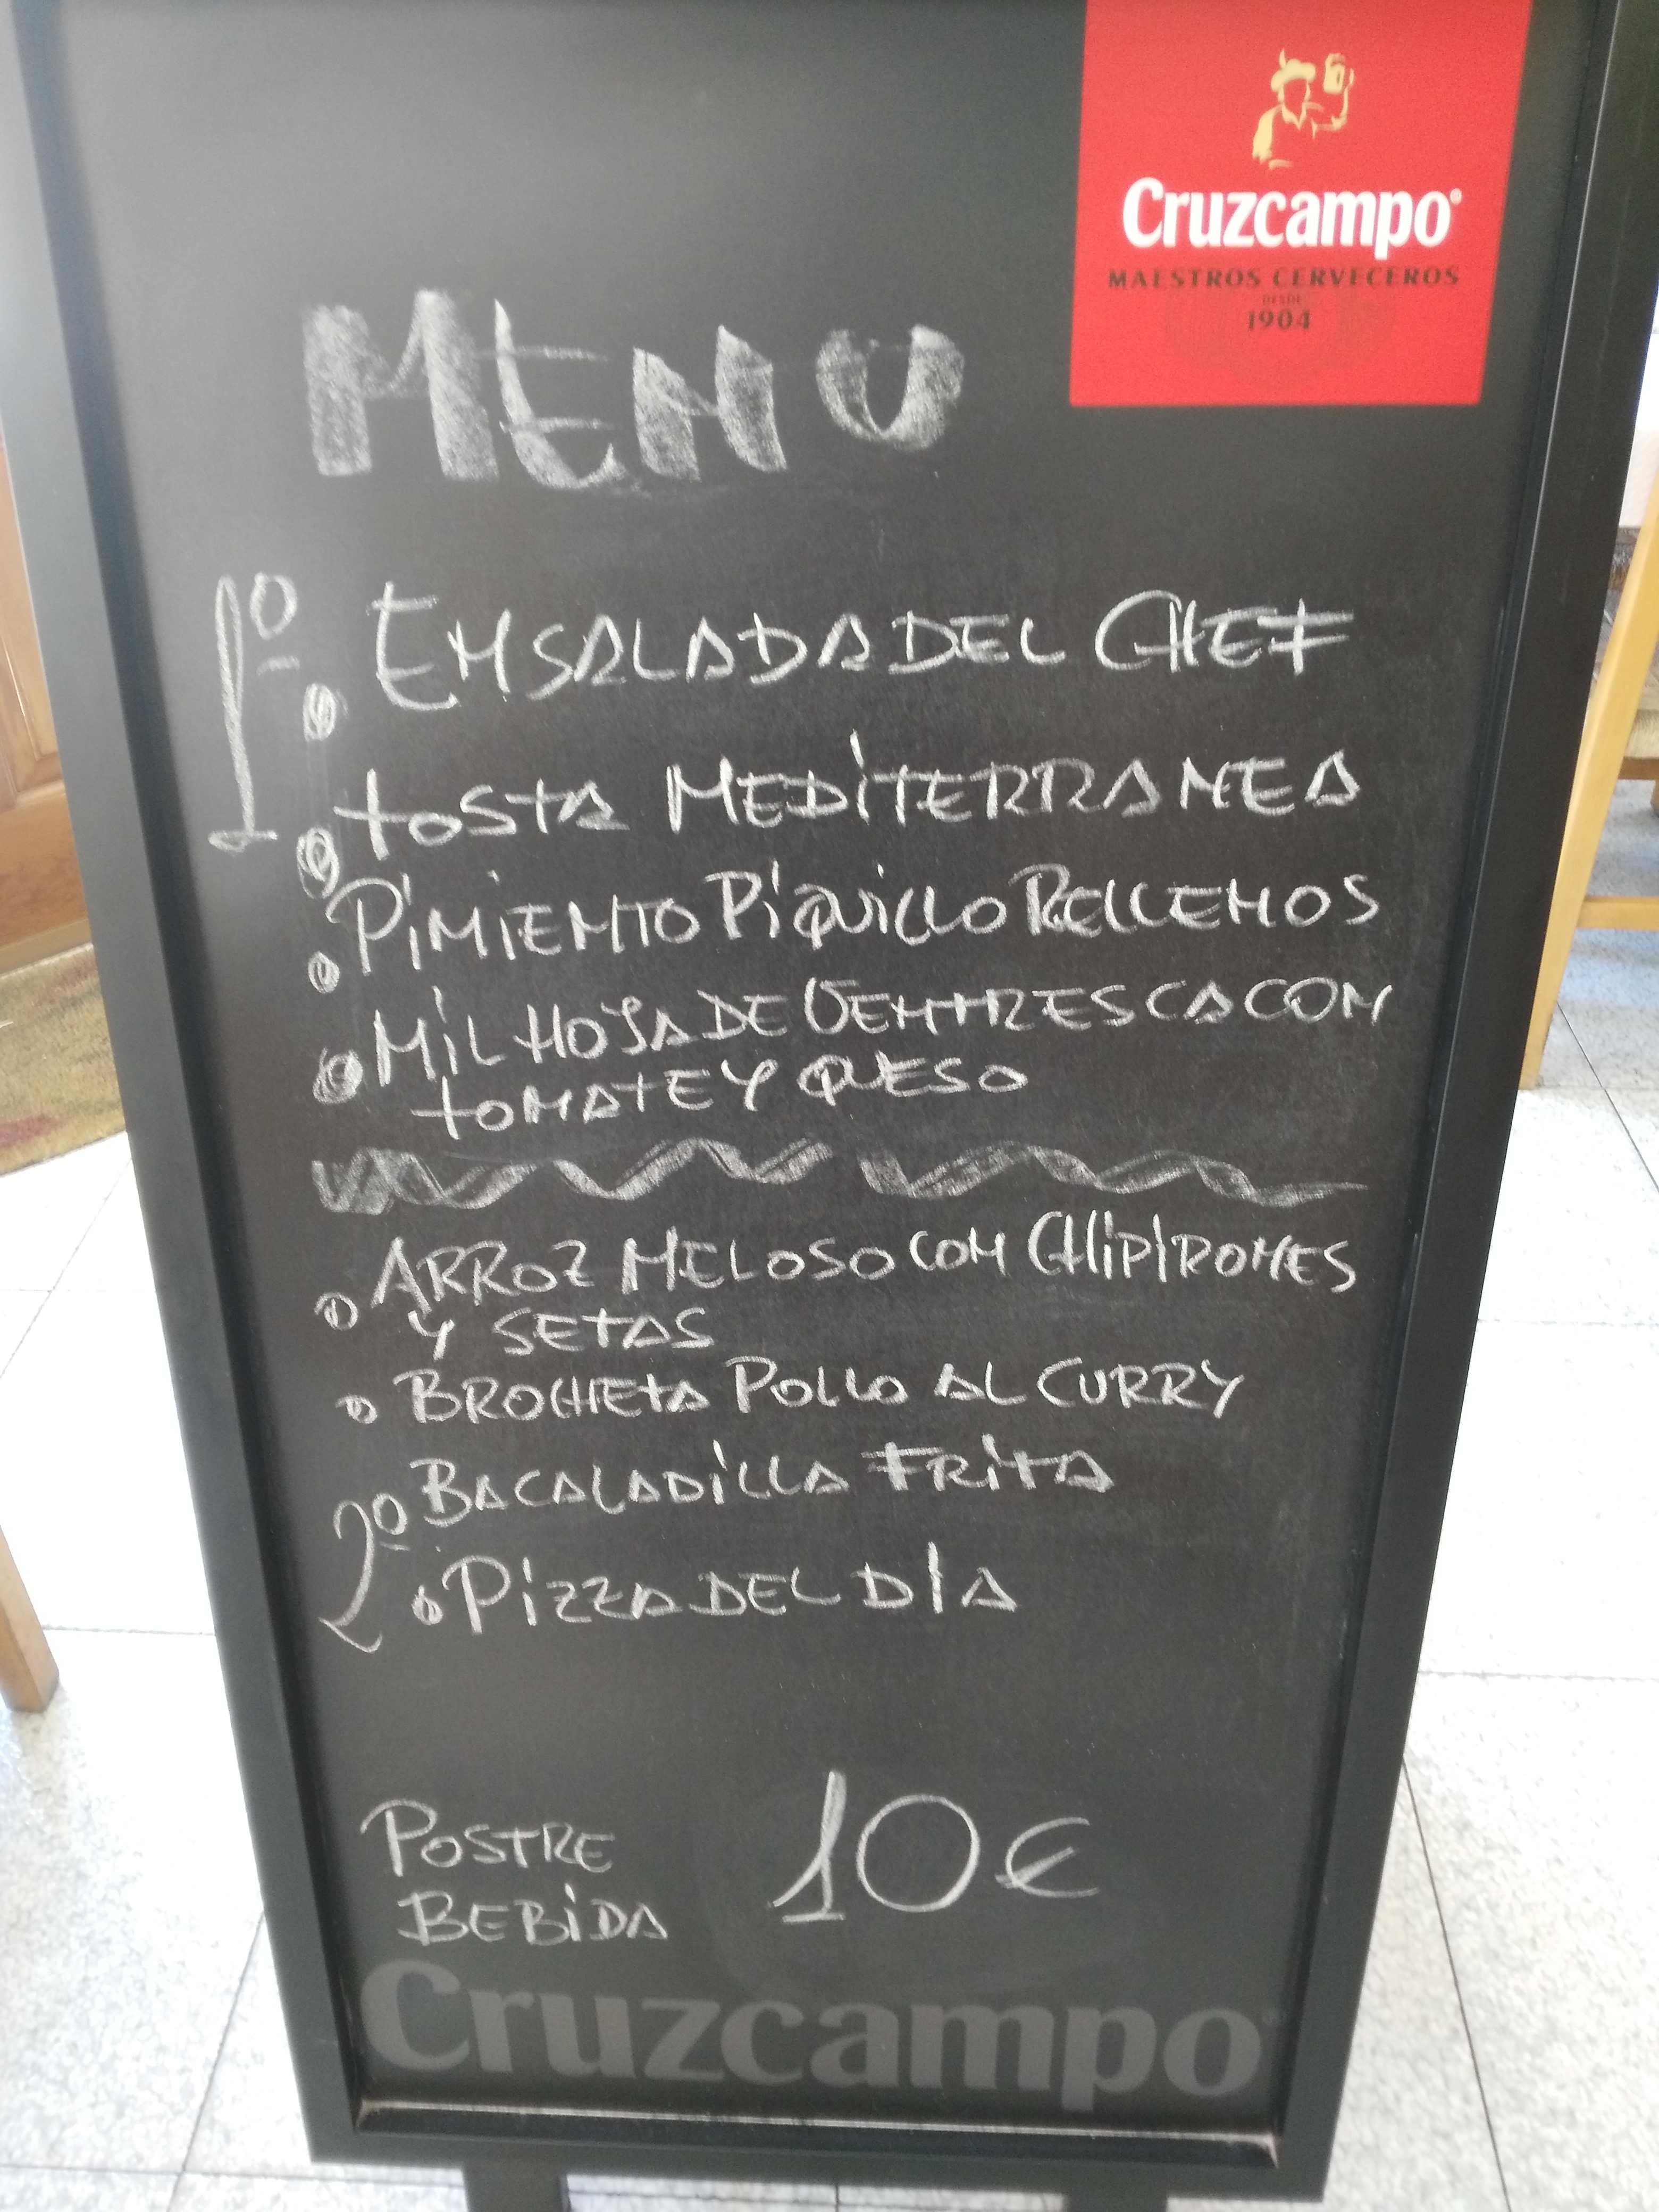 Cruzcampo
MAESTROS CERVECEROS
DESDE
1904
MENU
1º
ENSALADA DEL CHEF
TOSTA MEDITERRANEA
PIMIENTO PIQUILLO RELLENOS
MIL HOJA DE VENTRESCA CON
TOMATE Y QUESO
ARROZ MELOSO CON CHIPIRONES
Y SETAS
BROCHETA POLLO AL CURRY
BACALADILLA FRITA
2º
PIZZA DEL DIA
POSTRE
BEBIDA
10€
Cruzcampo